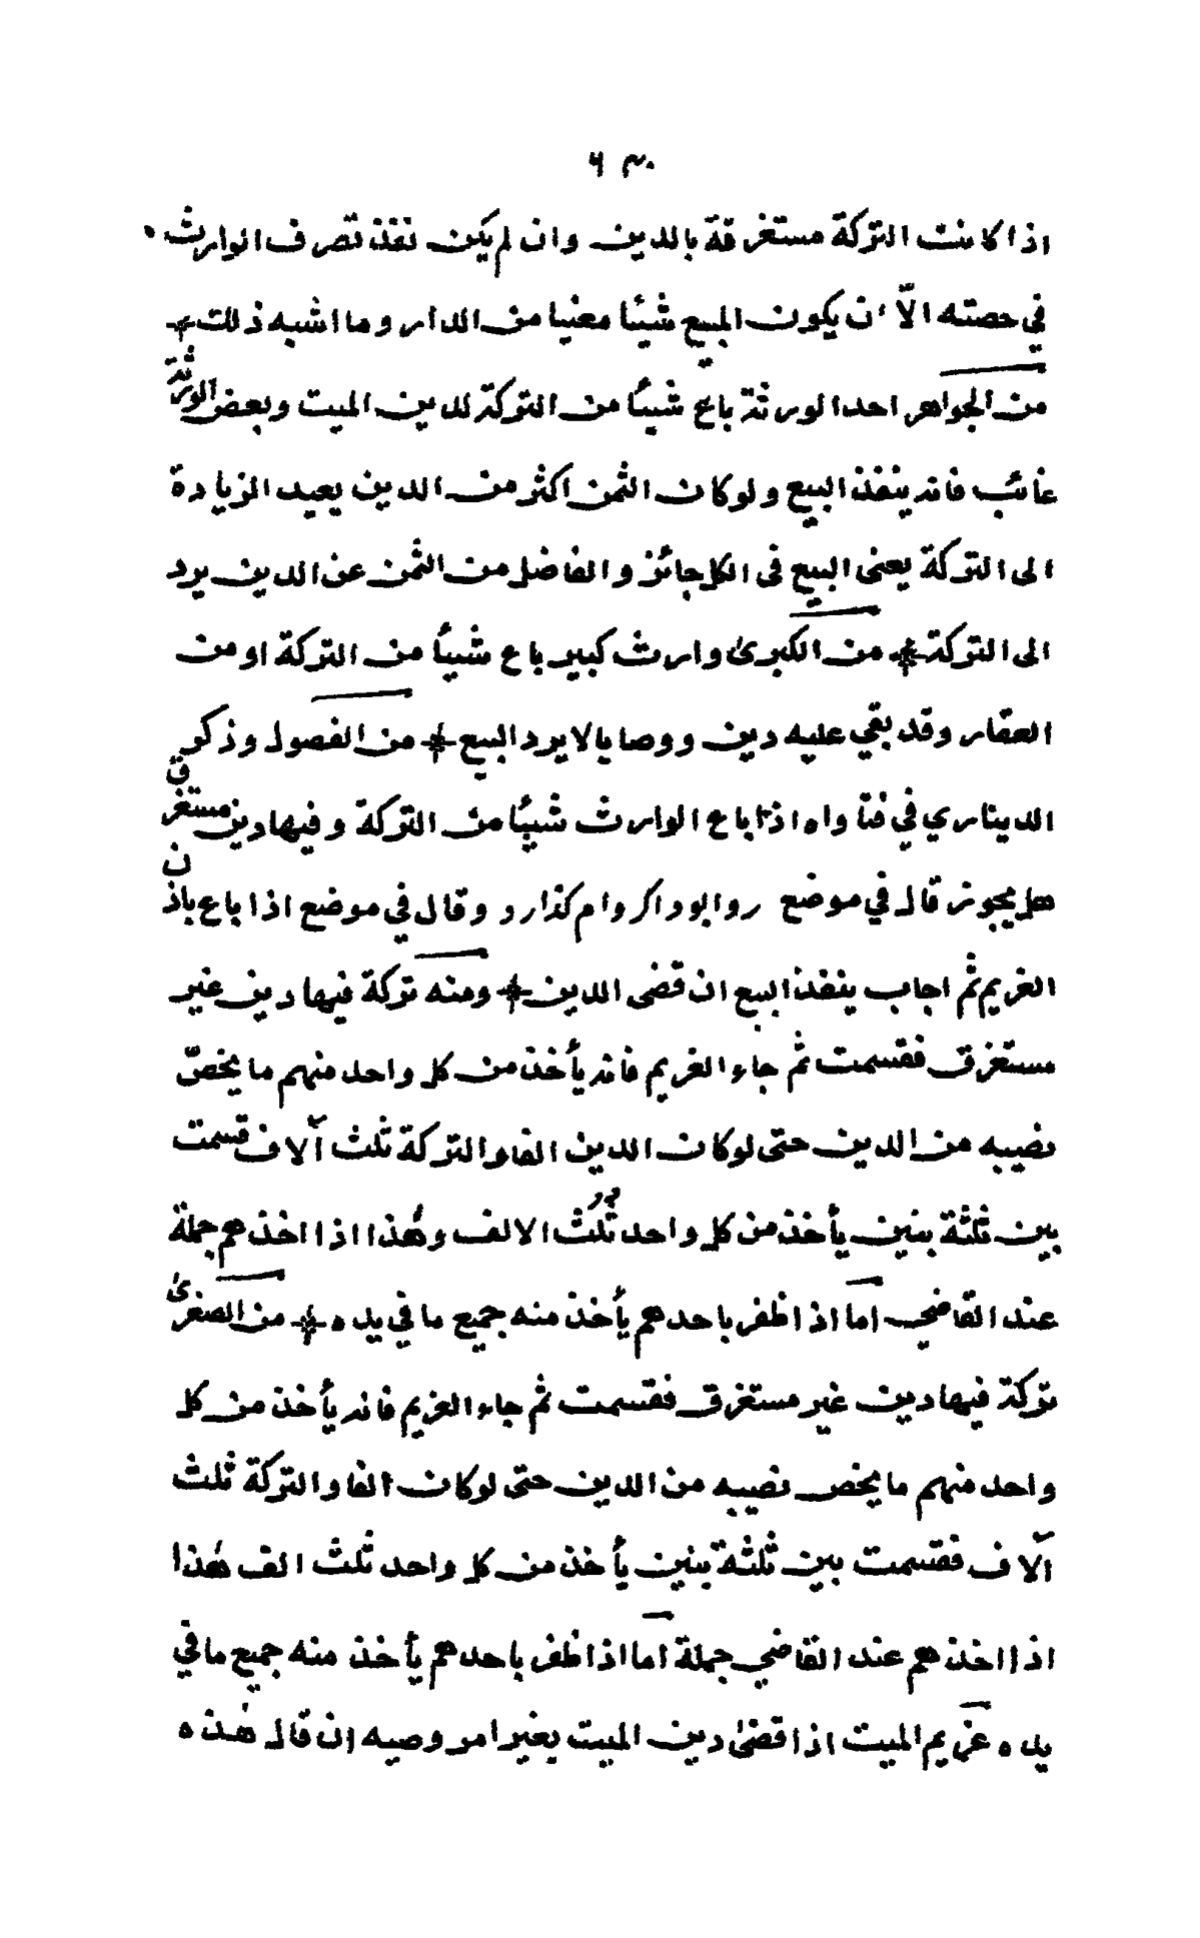 ٦٣٠
اذا كانت التركة مستغرقة بالدين وان لم يكن نفذ تصرف الوارث
في حصته الّا ان يكون المبيع شيئا معنيا من الدار وما اشبه ذلك
من الجواهر احد الورثة باع شيئا من التركة لدين الميت وبعض الورثة
غائب فانه ينفذ البيع ولو كان الثمن اكثر من الدين يعيد الزيادة
الى التركة يعنى البيع فى الكل جائز والفاضل من الثمن عن الدين يرد
الى التركة من الكبرىٰ وارث كبير باع شيأ من التركة او من
العقار وقد بقي عليه دين ووصايا لا يرد البيع من الفصول وذكر
الديناري في فتاواه اذا باع الوارث شيئا من التركة وفيها دين مستغرق
هل يجوز قال في موضع روا بود اكر وام كذارد وقال في موضع اذا باع باذن
الغريم ثم اجاب ينفذ البيع ان قضى الدين ومنه تركة فيها دين غير
مستغرق فقسمت ثم جاء الغريم فانه يأخذ من كل واحد منهم ما يخصّ
نصيبه من الدين حتى لو كان الدين الفا والتركة ثلث آلاف قسمت
بين ثلثة بنين يأخذ من كل واحد ثلث الالف وهٰذا اذا اخذهم جملة
عند القاضي اما اذا ظفر باحدهم يأخذ منه جميع ما في يده من الصغرىٰ
تركة فيها دين غير مستغرق فقسمت ثم جاء الغريم فانه يأخذ من كل
واحد منهم ما يخص نصيبه من الدين حتى لو كان الفا والتركة ثلث
آلاف فقسمت بين ثلثة بنين يأخذ من كل واحد ثلث الف هٰذا
اذا اخذهم عند القاضي جملة اما اذا ظفر باحدهم يأخذ منه جميع ما في
يده غريم الميت اذا قضىٰ دين الميت بغير امر وصيه ان قال هٰذه